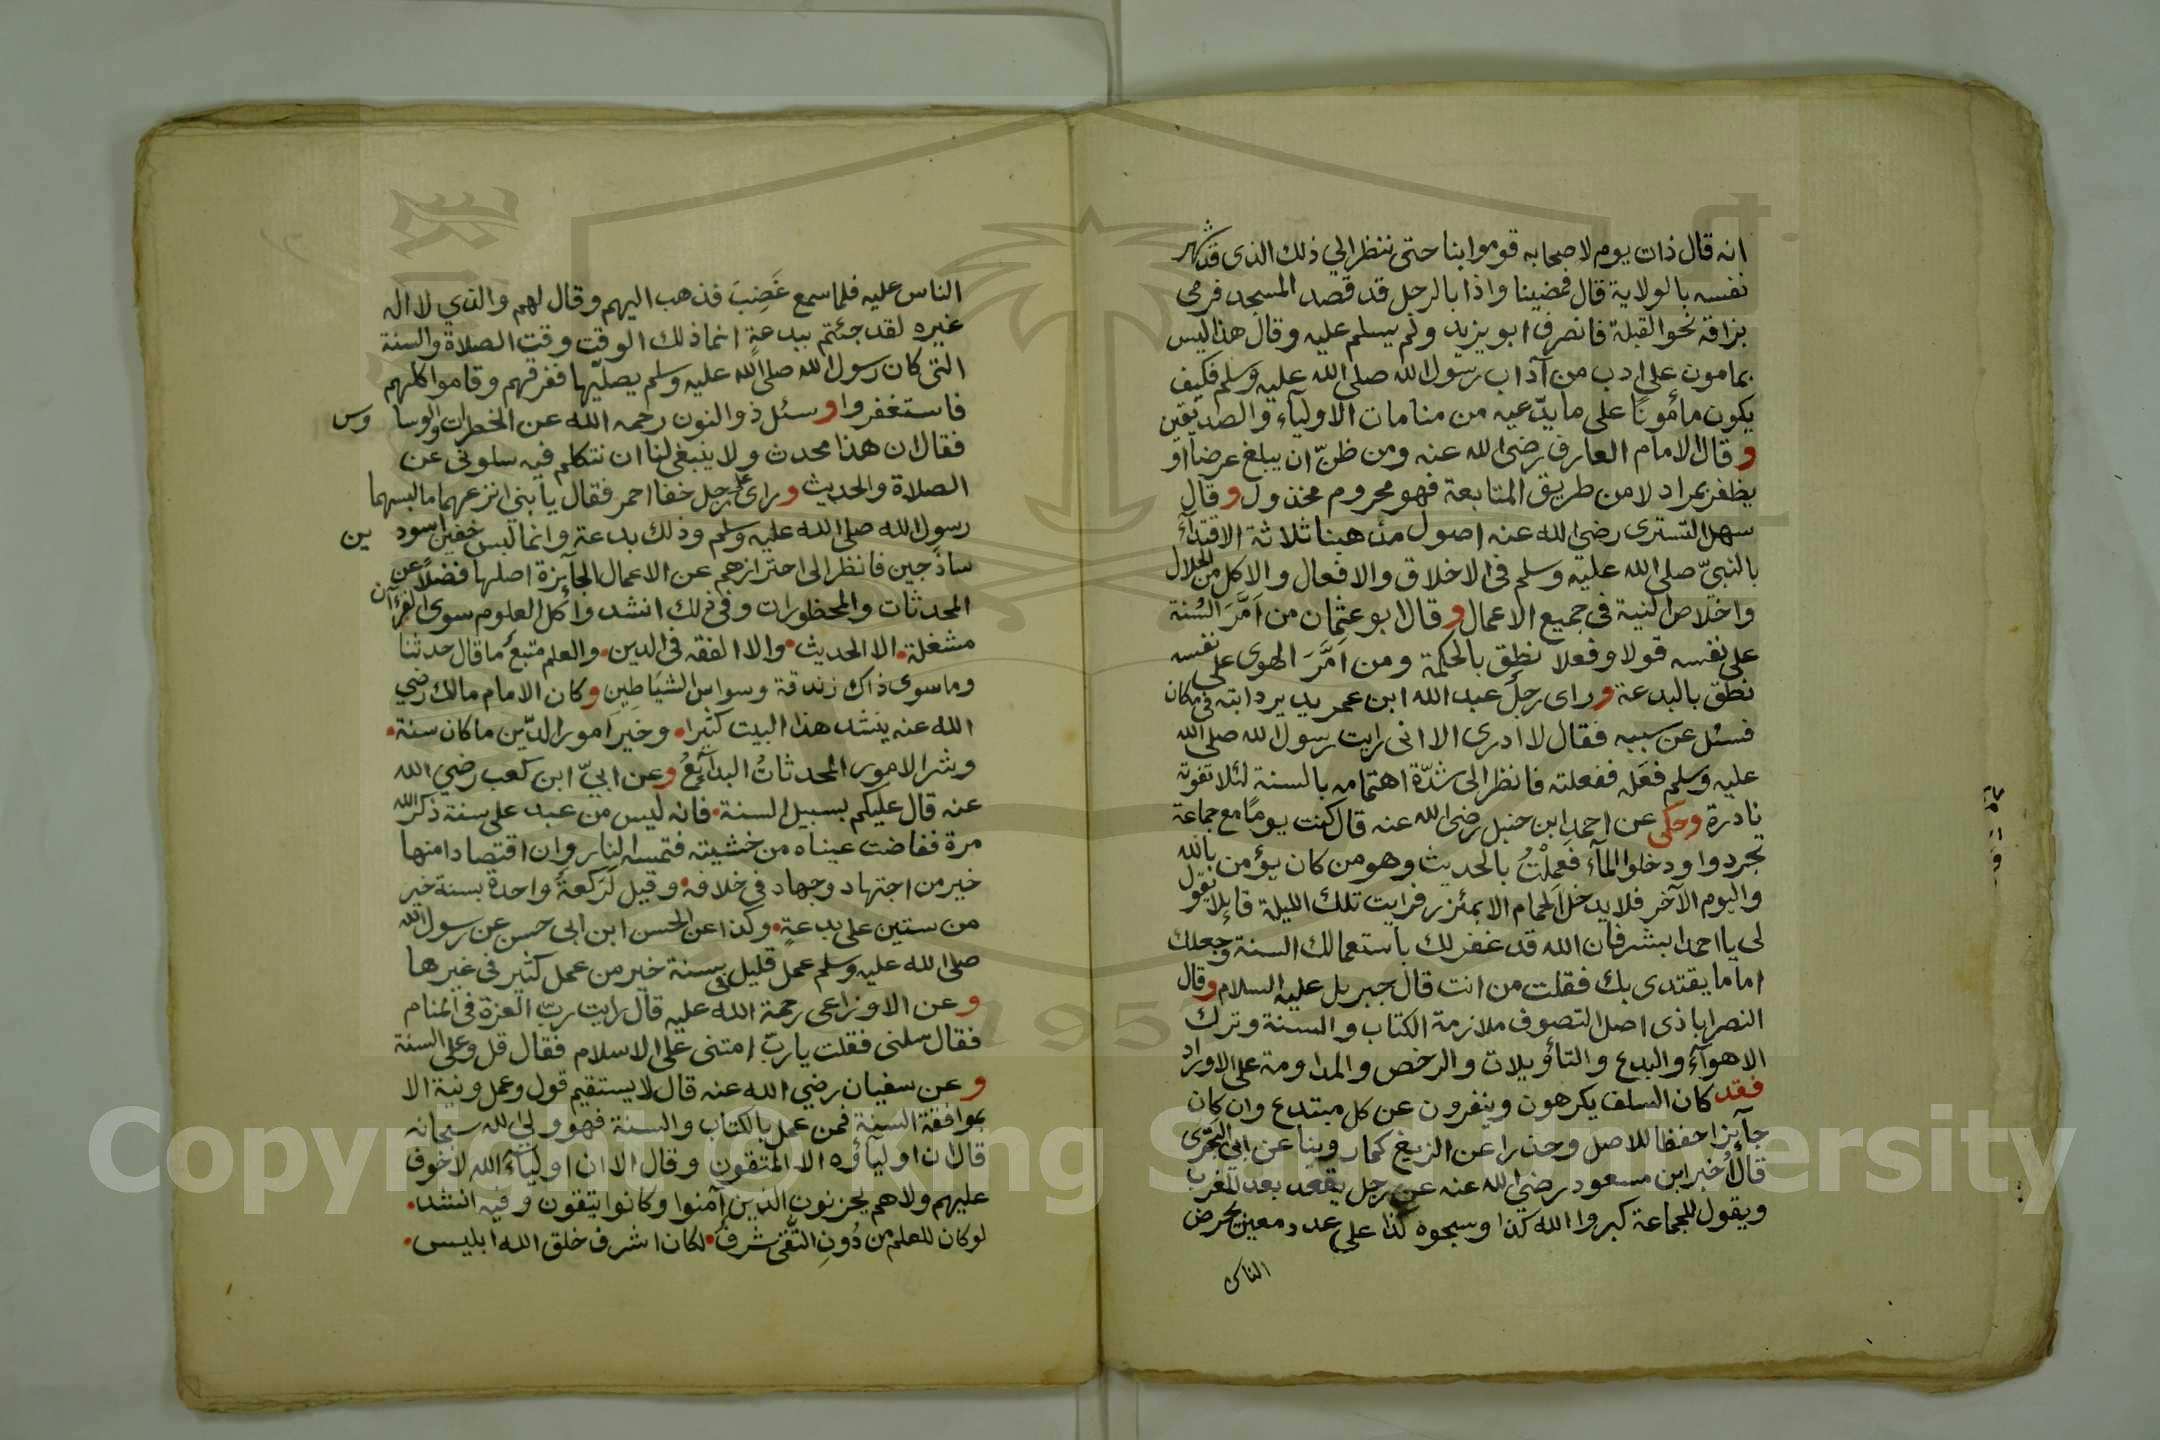 انه قال ذات يوم لاصحابه قوموا بنا حتى ننظر الي ذلك الذى قد شهر
نفسه بالولاية قال فمضينا واذا بالرجل قد قصد المسجد فرمى
بزاقه نحو القبلة فانصرف ابو يزيد ولم يسلم عليه وقال هذا ليس
بمامون على ادب من آداب رسول الله صلى الله عليه وسلم فكيف
يكون مأمونًا على ما يدّعيه من منامات الاوليآء والصديقين
و قال الامام العارف رضى الله عنه ومن ظنّ ان يبلغ عرضا او
يظفر بمراد لا من طريق المتابعة فهو محروم مخذول و قال
سهل التسترى رضى الله عنه اصول مذهبنا ثلاثة الاقتدآء
بالنبيّ صلى الله عليه وسلم في الاخلاق والافعال والاكل من الحلال
واخلاص النية في جميع الاعمال و قال ابو عثمان من اَمَّرَ السُنة
على نفسه قولا وفعلا نطق بالحكمة ومن اَمَّرَ الهوى على نفسه
نطق بالبدعة و راى رجل عبد الله ابن عمر يدير دابته في مكان
فسئل عن سببه فقال لا ادرى الا انى رايت رسول الله صلى الله
عليه وسلم فعَله ففعلته فانظر الى شدّة اهتمامه بالسنة لئلا تفوته
نادرة وحكى عن احمد ابن حنبل رضى الله عنه قال كنت يومًا مع جماعة
تجردوا ودخلوا المآء فعملْتُ بالحديث وهو من كان يؤمن بالله
واليوم الآخر فلا يدخل الحمام الا بمئزر فرايت تلك الليلة قايلا يقول
لى يا احمد ابشر فان الله قد غفر لك باستعمالك السنة وجعلك
اماما يقتدى بك فقلت من انت قال جبريل عليه السلام و قال
النصراباذى اصل التصوف ملازمة الكتاب والسنة وترك
الاهوآء والبدع والتأويلات والرخص والمداومة على الاوراد
فقد كان السلف يكرهون وينفرون عن كل مبتدع وان كان
جآيزا حفظا للاصل وحذرا عن الزيغ كما روينا عن ابى البَخْترى
قال اُخبر ابن مسعود رضى الله عنه عن رجل يقعد بعد المغرب
ويقول للجماعة كبروا الله كذا وسبحوه كذا على عدد معين يحرض
الناس
الناس عليه فلما سمع غَضِبَ فذهب اليهم وقال لهم والذي لا اله
غيره لقد جئتم ببدعةٍ انما ذلك الوقت وقت الصلاة والسنة
التى كان رسول الله صلى الله عليه وسلم يصلّيها ففرقهم وقاموا كلهم
فاستغفروا و سئل ذو النون رحمه الله عن الخطرات والوساوس
فقال ان هذا محدث ولا ينبغي لنا ان نتكلم فيه سلونى عن
الصلاة والحديث و راى على رجل خفا احمر فقال يا بني انزعهما ما لبسهما
رسول الله صلى الله عليه وسلم وذلك بدعة وانما لبس خفين اسودين
ساذجين فانظر الى احترازهم عن الاعمال الجآيزة اصلها فضلا عن
المحدثات والمحظورات وفي ذلك انشد وا كل العلوم سوى القرءان
مشغلة. الا الحديث. والا الفقه في الدين. والعلم متبع ما قال حدثنا
وما سوى ذاك زندقة وسواس الشياطِينِ و كان الامام مالك رضي
الله عنه ينشد هذا البيت كثيرا. وخير امور الدّين ما كان سنة.
وشر الامور المحدثاتُ البدآئعُ و عن ابيّ ابن كعب رضي الله
عنه قال عليكم بسبيل السنة. فانه ليس من عبد على سنة ذكر الله
مرة ففاضت عيناه من خشيته فتمسه النار وان اقتصادا منها
خير من اجتهاد وجهاد في خلافه. وقيل لَرَكعة واحدة بسنة خير
من ستين على بدعةٍ. وكذا عن الحسن ابن ابى حسن عن رسول الله
صلى الله عليه وسلم عمل قليل في سنة خير من عمل كثير في غيرها
و عن الاوزاعى رحمة الله عليه قال رايت ربّ العزة في المنام
فقال سلنى فقلت يا ربّ امتنى على الاسلام فقال قل وعلى السنة
و عن سفيان رضي الله عنه قال لا يستقيم قول وعمل ونية الا
بموافقة السنة فمن عمل بالكتاب والسنة فهو ولي لله سبحانه
قال ان اوليآؤه الا المتقون وقال الا ان اوليآء الله لا خوف
عليهم ولا هم يحزنون الذين آمنوا وكانوا يتقون وفيه انشد.
لو كان للعلم من دُونِ التُّقى شرفٌ. لكان اشرف خلق الله ابليس.
Copyright © King Saud University
1957